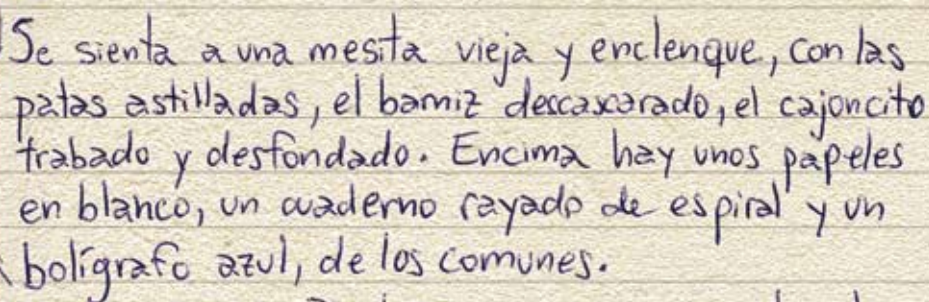 Se sienta a una mesita vieja y enclenque, con las
patas astilladas, el barniz descascarado, el cajoncito
trabado y desfondado. Encima hay unos papeles
en blanco, un cuaderno rayado de espiral y un
bolígrafo azul, de los comunes.